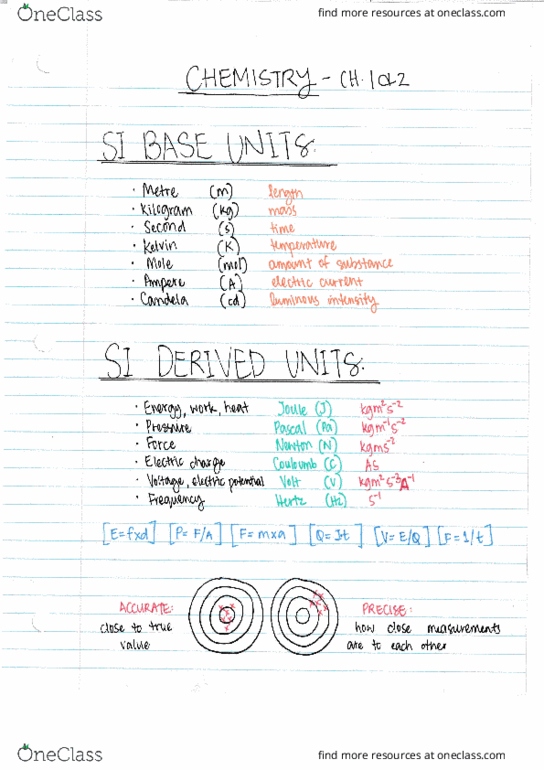 OneClass
find more resources at oneclass.com
CHEMISTRY - CH. 1 & 2
SI BASE UNITS:
· Metre (m) length
· Kilogram (kg) mass
· Second (s) time
· Kelvin (K) temperature
· Mole (mol) amount of substance
· Ampere (A) electric current
· Candela (cd) luminous intensity
SI DERIVED UNITS:
· Energy, work, heat Joule (J) kgm²s⁻²
· Pressure Pascal (Pa) kgm⁻¹s⁻²
· Force Newton (N) kgms⁻²
· Electric charge Couloumb (C) As
· Voltage, electric potential Volt (V) kgm²s⁻³A⁻¹
· Frequency Hertz (Hz) s⁻¹
[E=fxd] [P= F/A] [F= mxa] [Q= It] [V= E/Q] [F=1/t]
ACCURATE:
close to true
value
PRECISE:
how close measurements
are to each other
OneClass
find more resources at oneclass.com